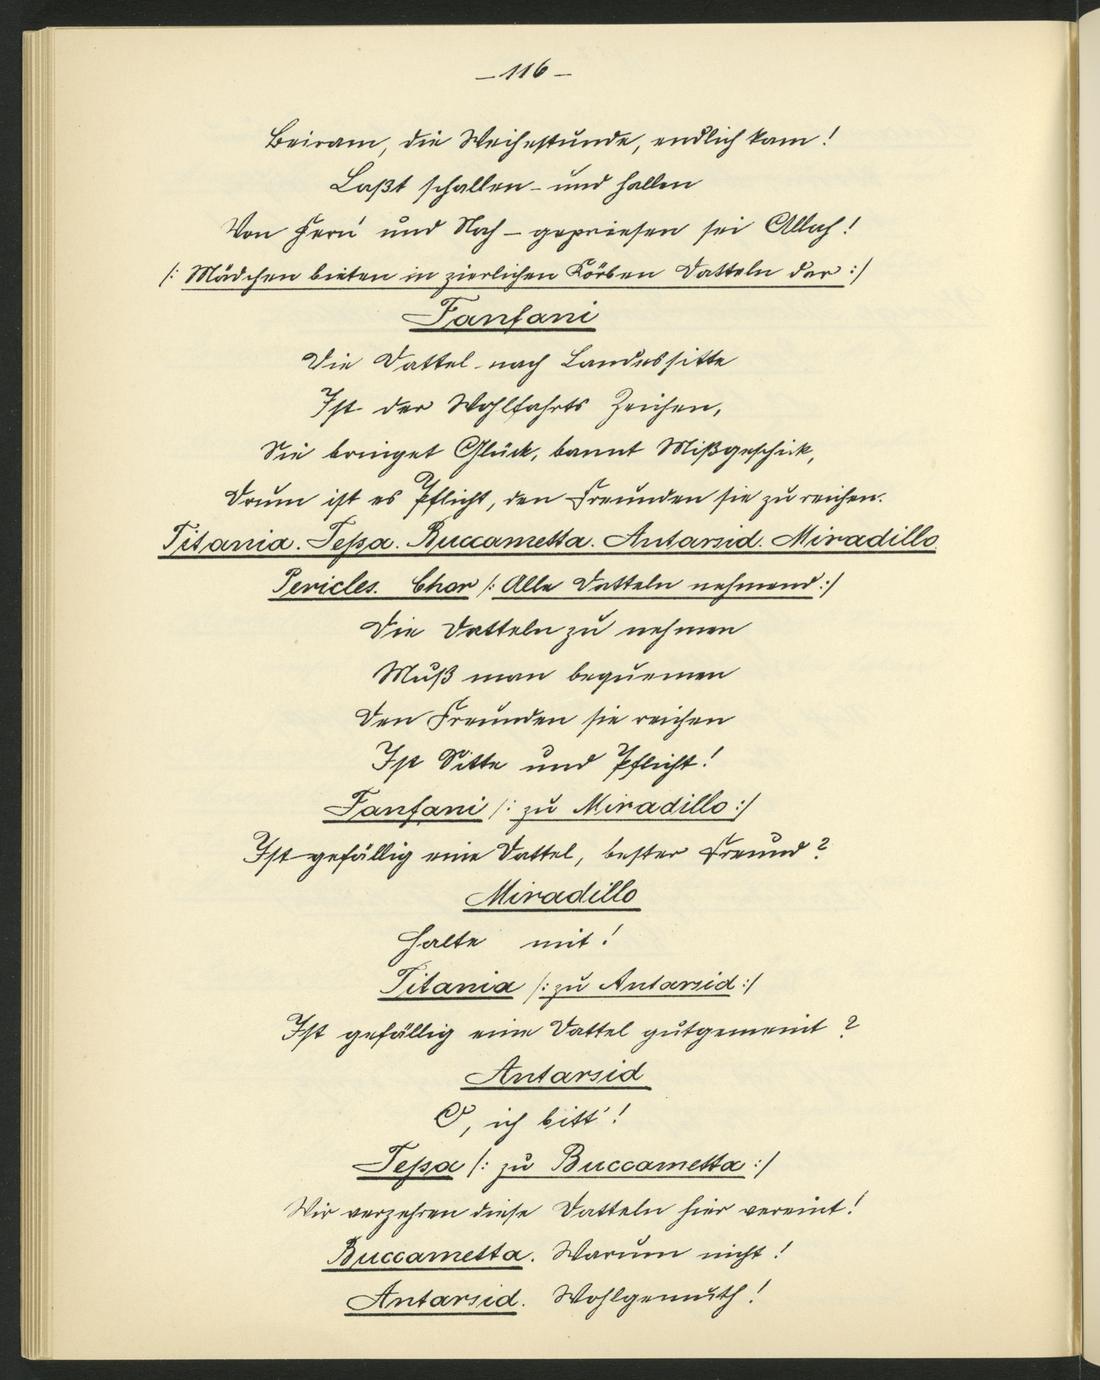 – 116 –
Beiram, die Weihestunde, endlich kam!
Laßt schallen – und hallen
Von Fern' und Nah – gepriesen sei Allah!
/: Mädchen bieten in zierlichen Körben Datteln dar :/
Fanfani
Die Dattel nach Landessitte
Ist der Wohlfahrts Zeichen,
Sie bringet Glück, bannt Mißgeschick,
Drum ist es Pflicht, den Freunden sie zu reichen.
Titania. Tessa. Buccametta. Antarsid. Miradillo
Pericles. Chor /: Alle Datteln nehmend :/
Die Datteln zu nehmen
Muß man bequemen
Den Freunden sie reichen
Ist Sitte und Pflicht!
Fanfani /: zu Miradillo :/
Ist gefällig eine Dattel, bester Freund?
Miradillo
Halte mit!
Titania /: zu Antarsid :/
Ist gefällig eine Dattel gutgemeint?
Antarsid
O, ich bitt'!
Tessa /: zu Buccametta :/
Wir verzehren diese Datteln hier vereint!
Buccametta. Warum nicht!
Antarsid. Wohlgemuth!